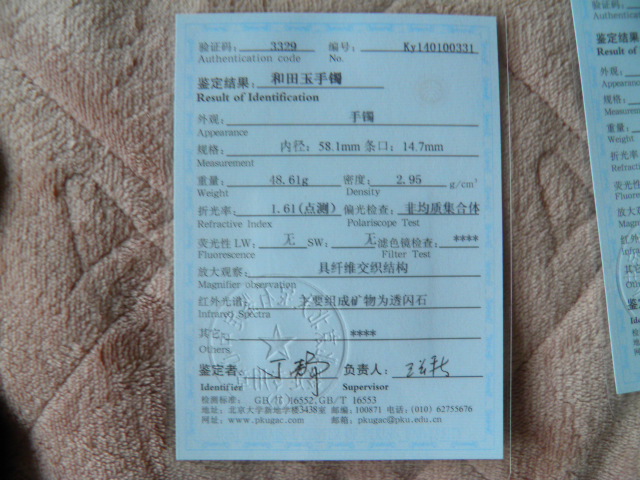 验证码: 3329 编号: Ky140100331
Authentication code No.
鉴定结果: 和田玉手镯
Result of Identification
外观: 手镯
Appearance
规格: 内径: 58.1mm 条口: 14.7mm
Measurement
重量: 48.61g 密度: 2.95 g/cm³
Weight Density
折光率: 1.61(点测) 偏光检查: 非均质集合体
Refractive Index Polariscope Test
荧光性 LW: 无 SW: 无 滤色镜检查: ****
Fluorescence Filter Test
放大观察: 具纤维交织结构
Magnifier observation
红外光谱: 主要组成矿物为透闪石
Infrared Spectra
其它: ****
Others
鉴定者: 负责人:
Identifier Supervisor
检测标准: GB/T 16552,GB/T 16553
地址: 北京大学新地学楼3438室 邮编: 100871 电话: (010) 62755676
网址: www.pkugac.com 邮箱: pkugac@pku.edu.cn
验证码:
Authentic
鉴定结果
Result of
外观:
Appearance
规格:
Measurem
重量:
Weight
折光率
Refracti
荧光性
Fluores
放大
Magn
红外